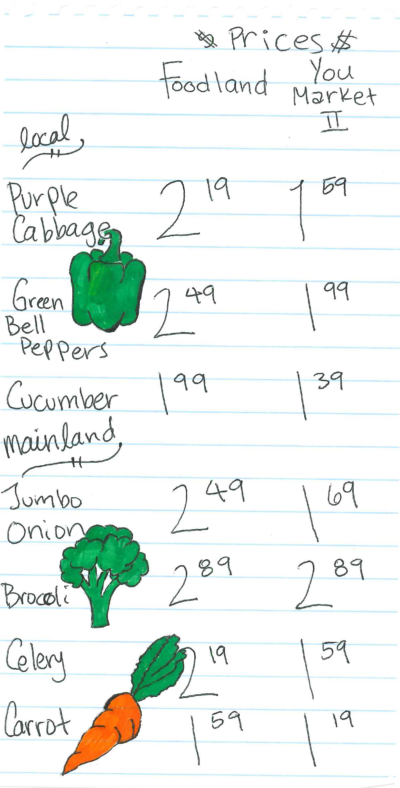 Prices $
Foodland
You
Market
II
local
Purple
Cabbage 2 19 1 59
Green
Bell
Peppers 2 49 1 99
Cucumber 1 99 1 39
mainland
Jumbo
Onion 2 49 1 69
Brocoli 2 89 2 89
Celery 2 19 1 59
Carrot 1 59 1 19